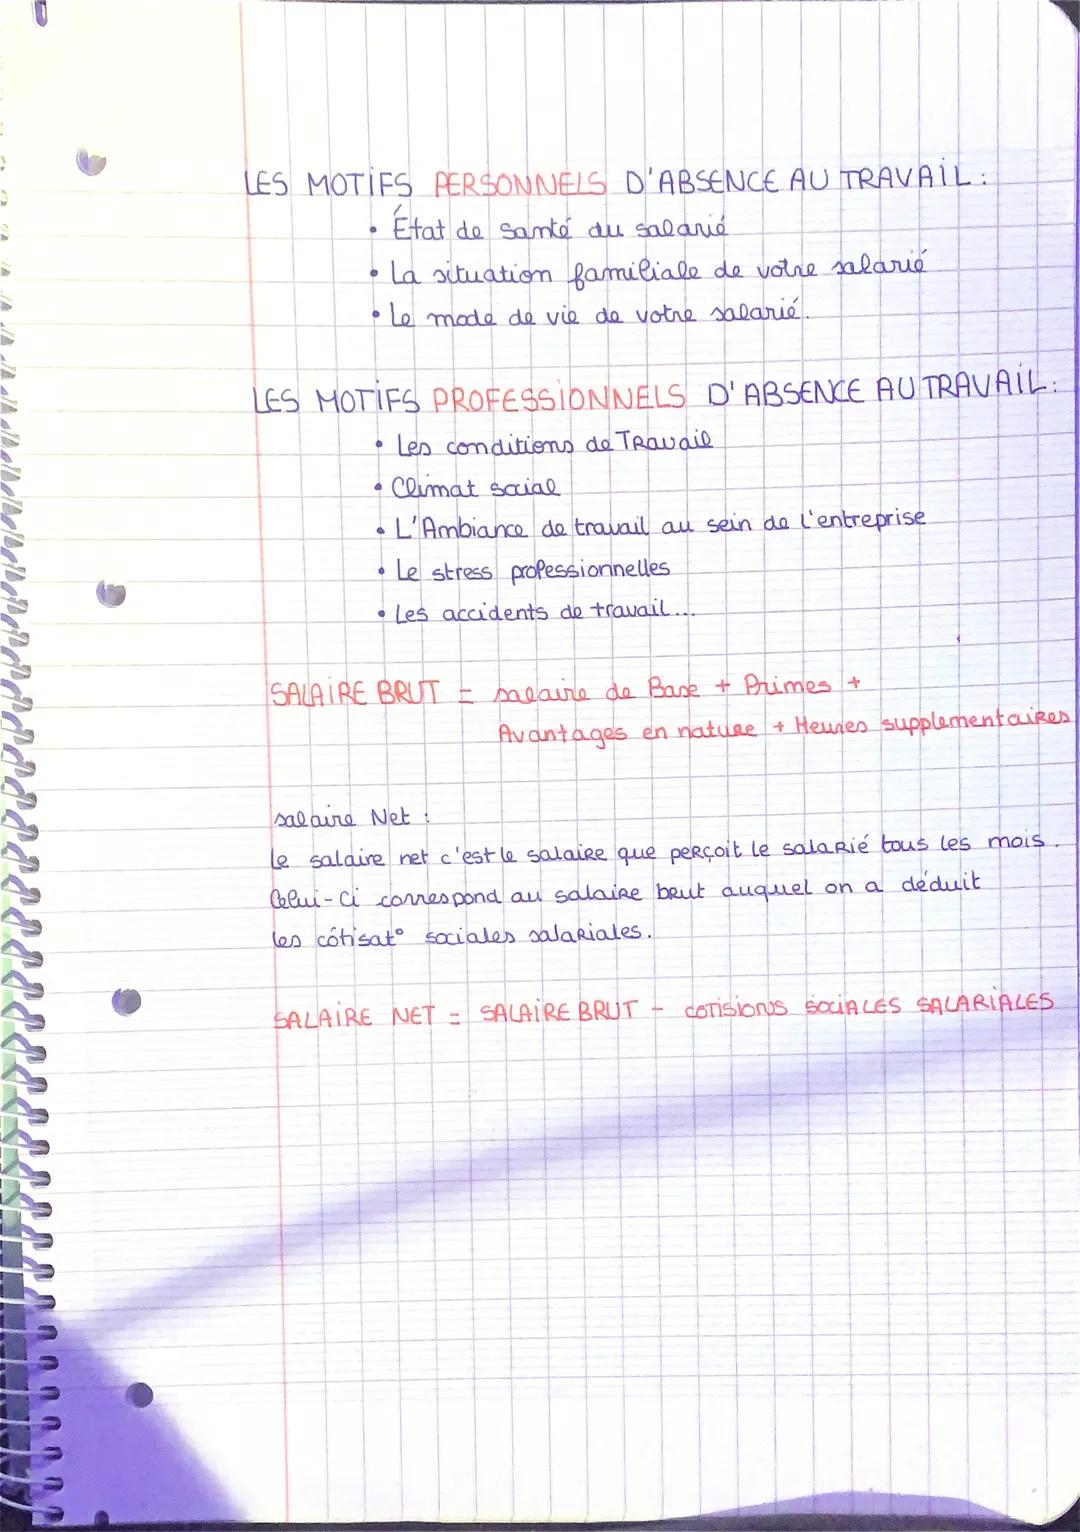 LES MOTIFS PERSONNELS D'ABSENCE AU TRAVAIL :
• État de santé du salarié
• La situation familiale de votre salarié
• Le mode de vie de votre salarié.
LES MOTIFS PROFESSIONNELS D'ABSENCE AU TRAVAIL :
• Les conditions de Travail
• Climat social
• L'Ambiance de travail au sein de l'entreprise
• Le stress professionnelles
• Les accidents de travail...
SALAIRE BRUT = salaire de Base + Primes +
Avantages en nature + Heures supplementaires
salaire Net :
Le salaire net c'est le salaire que perçoit le salarié tous les mois.
Celui-Ci correspond au salaire brut auquel on a déduit
les côtisat° sociales salariales.
SALAIRE NET = SALAIRE BRUT - cotisions SOCIALES SALARIALES